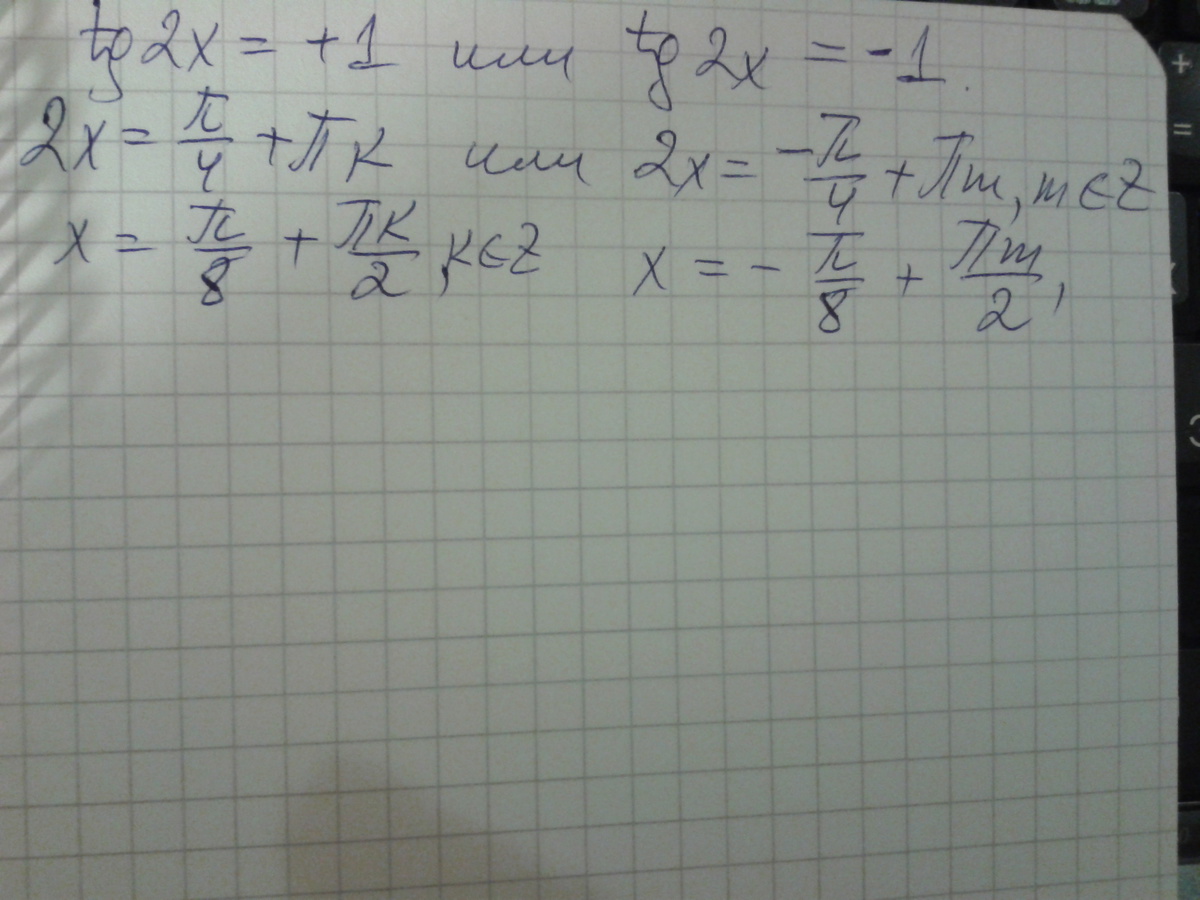 tg 2x = +1 или tg 2x = -1.
2x = π/4 + πк или 2x = -π/4 + πm, m∈Z
x = π/8 + πк/2, к∈Z x = - π/8 + πm/2,